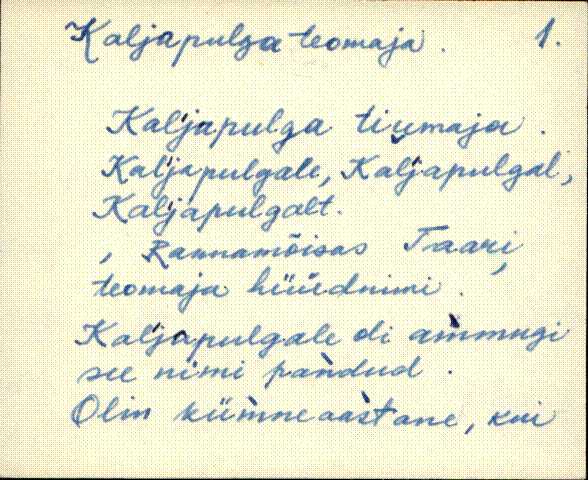 Kaljapulga teomaja. 1.
Kal'japulga tiu̬maja.
Kal'japulgale, Kal'japulgal,
Kal'japulgalt.
, Rannamõisas Taari,
teomaja hüüdnimi.
Kal'japulgale oli am̀mugi
see nimi pan̄dud.
Olin küm̀neaas̀tane, kui